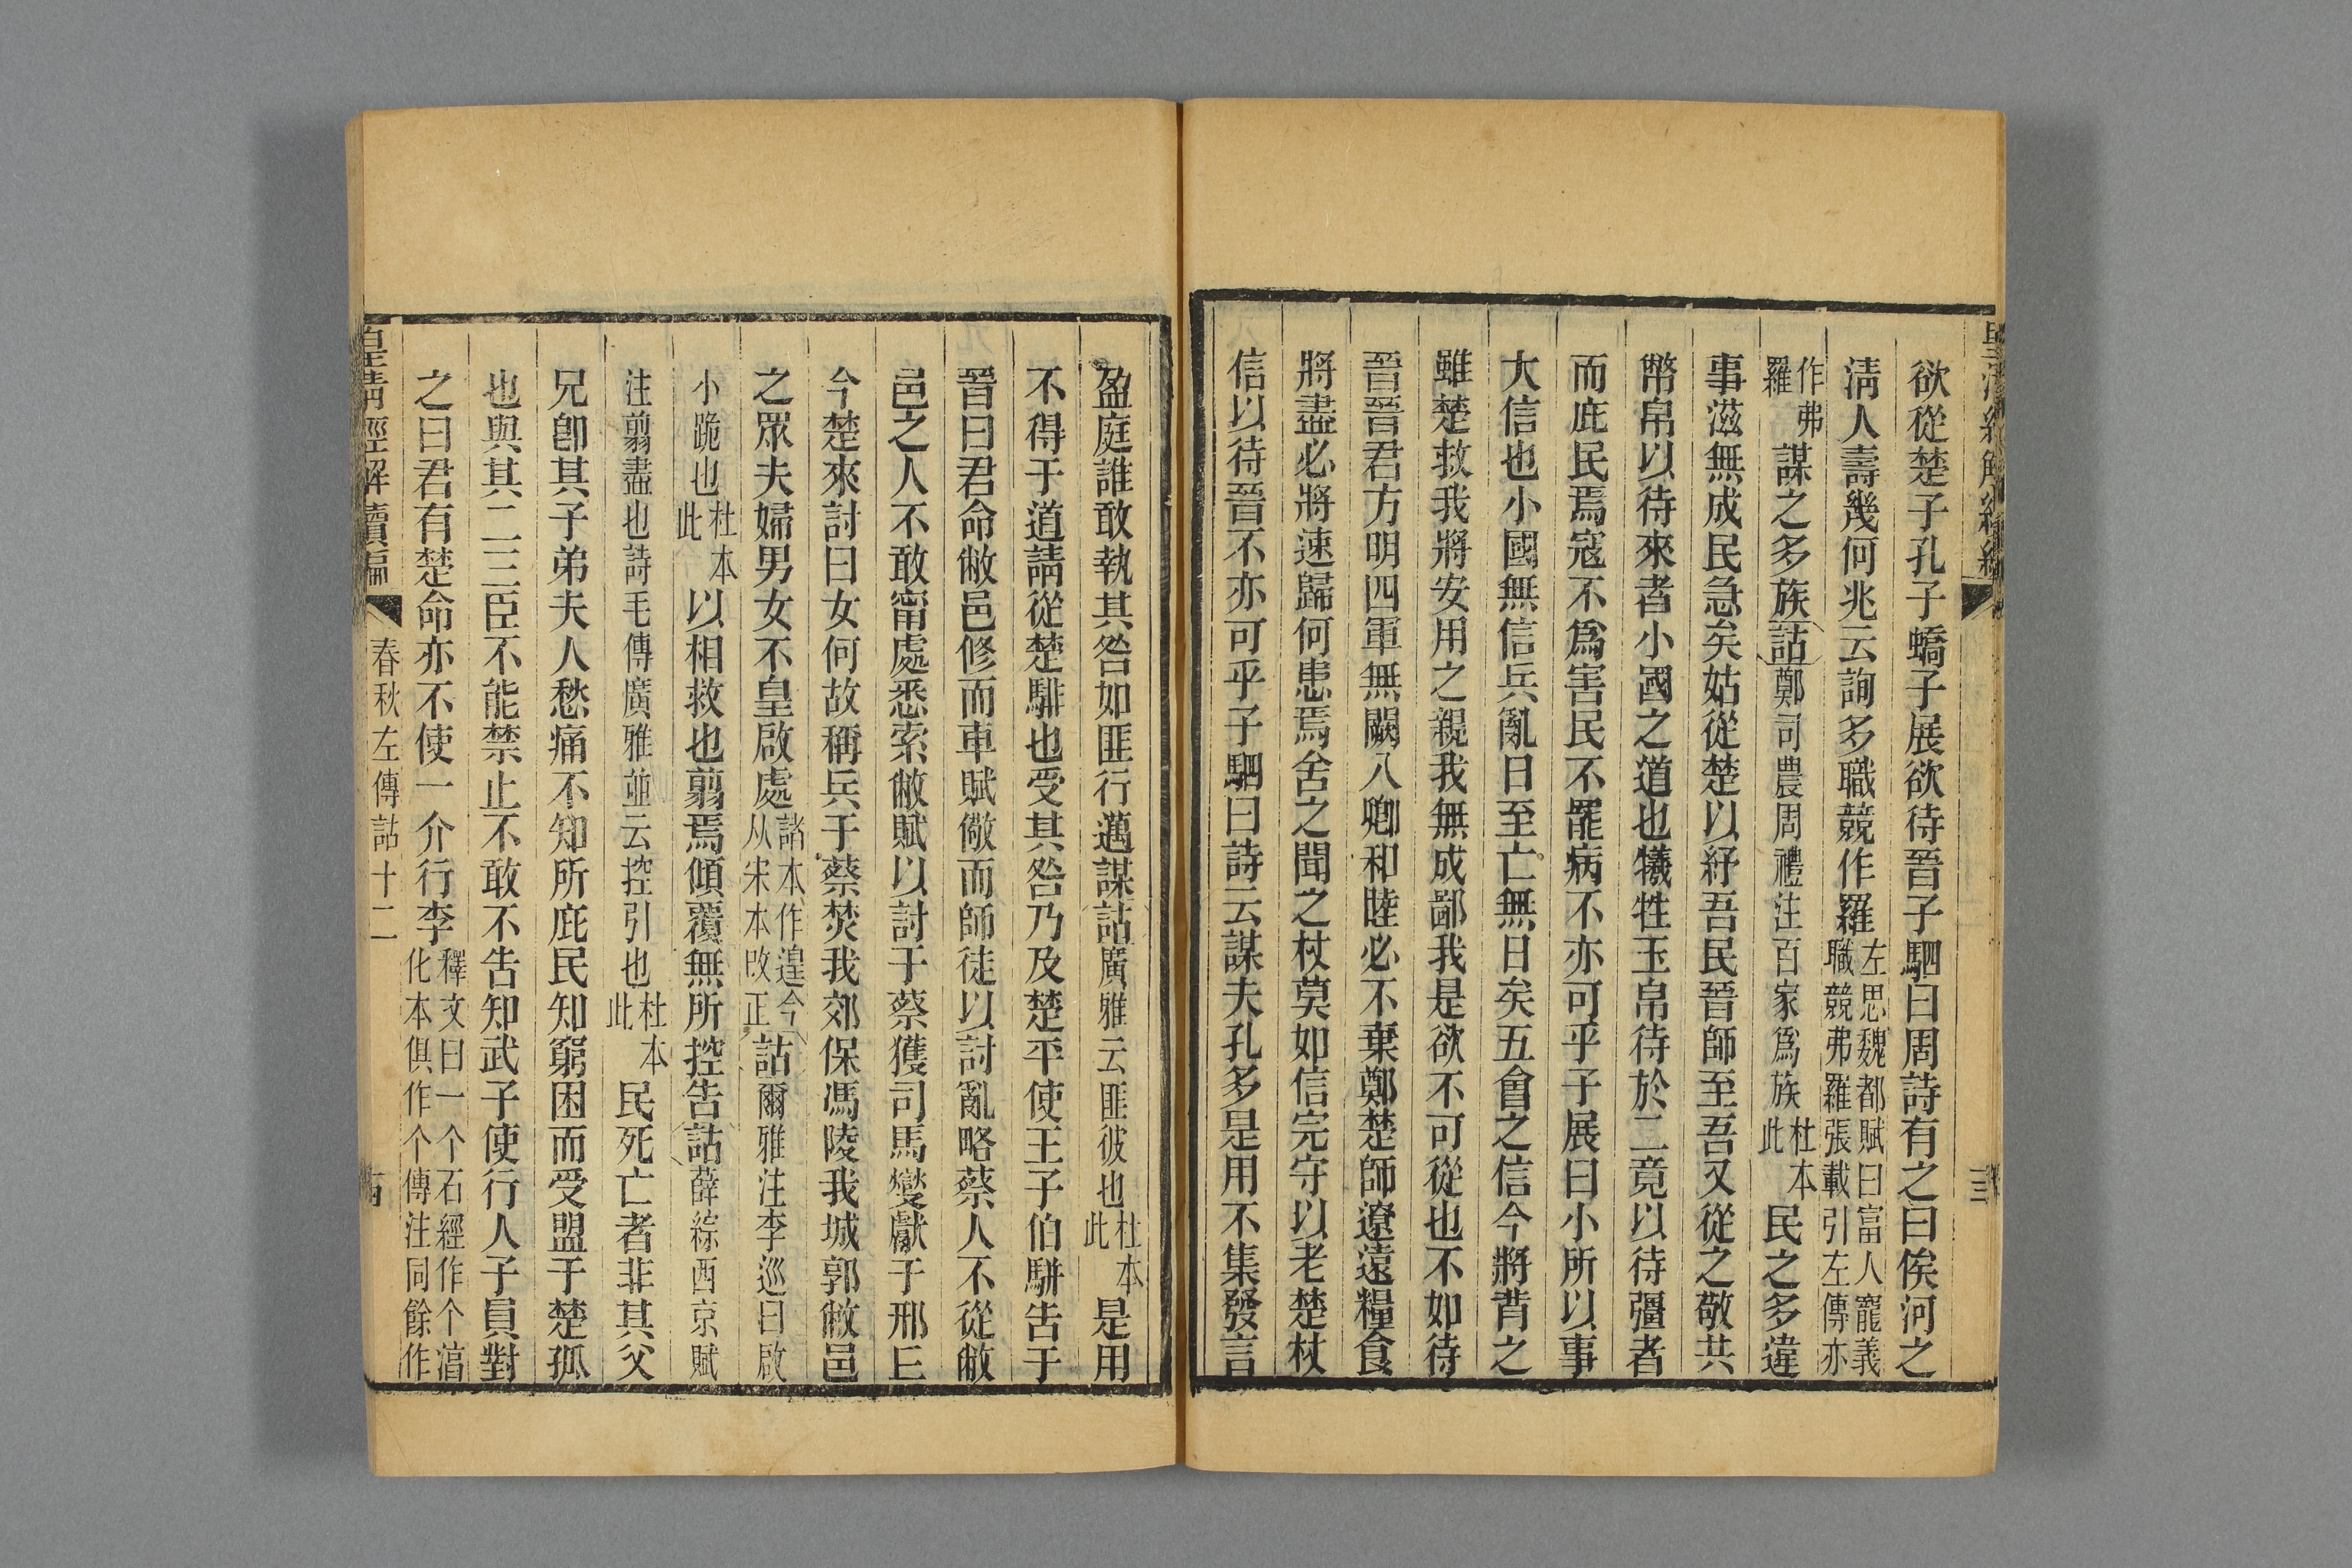 欲從楚子孔子蟜子展欲待晉子駟曰周詩有之曰俟河之
淸人壽幾何兆云詢多職競作羅左思魏都賦曰富人寵義職競弗羅張載引左傳亦
作弗羅謀之多族詁鄭司農周禮注百家爲族杜本此民之多違
事滋無成民急矣姑從楚以紓吾民晉師至吾又從之敬共
幣帛以待來者小國之道也犧牲玉帛待於二竟以待彊者
而庇民焉寇不爲害民不罷病不亦可乎子展曰小所以事
大信也小國無信兵亂日至亡無日矣五會之信今將背之
雖楚救我將安用之親我無成鄙我是欲不可從也不如待
晉晉君方明四軍無闕八卿和睦必不棄鄭楚師遼遠糧食
將盡必將速歸何患焉舍之聞之杖莫如信完守以老楚杖
信以待晉不亦可乎子駟曰詩云謀夫孔多是用不集發言
盈庭誰敢執其咎如匪行邁謀詁廣雅云匪彼也杜本此是用
不得于道請從楚騑也受其咎乃及楚平使王子伯騈告于
晉曰君命敝邑修而車賦儆而師徒以討亂略蔡人不從敝
邑之人不敢甯處悉索敝賦以討于蔡獲司馬燮獻于邢丘
今楚來討曰女何故稱兵于蔡焚我郊保馮陵我城郭敝邑
之眾夫婦男女不皇啟處諸本作遑今从宋本改正詁爾雅注李巡曰啟
小跪也杜本此以相救也翦焉傾覆無所控告詁薛綜西京賦
注翦盡也詩毛傳廣雅並云控引也杜本此民死亡者非其父
兄卽其子弟夫人愁痛不知所庇民知窮困而受盟于楚孤
也與其二三臣不能禁止不敢不告知武子使行人子員對
之曰君有楚命亦不使一介行李釋文曰一个石經作个湻化本俱作个傳注同餘作
皇淸經解續編 春秋左傳詁十二